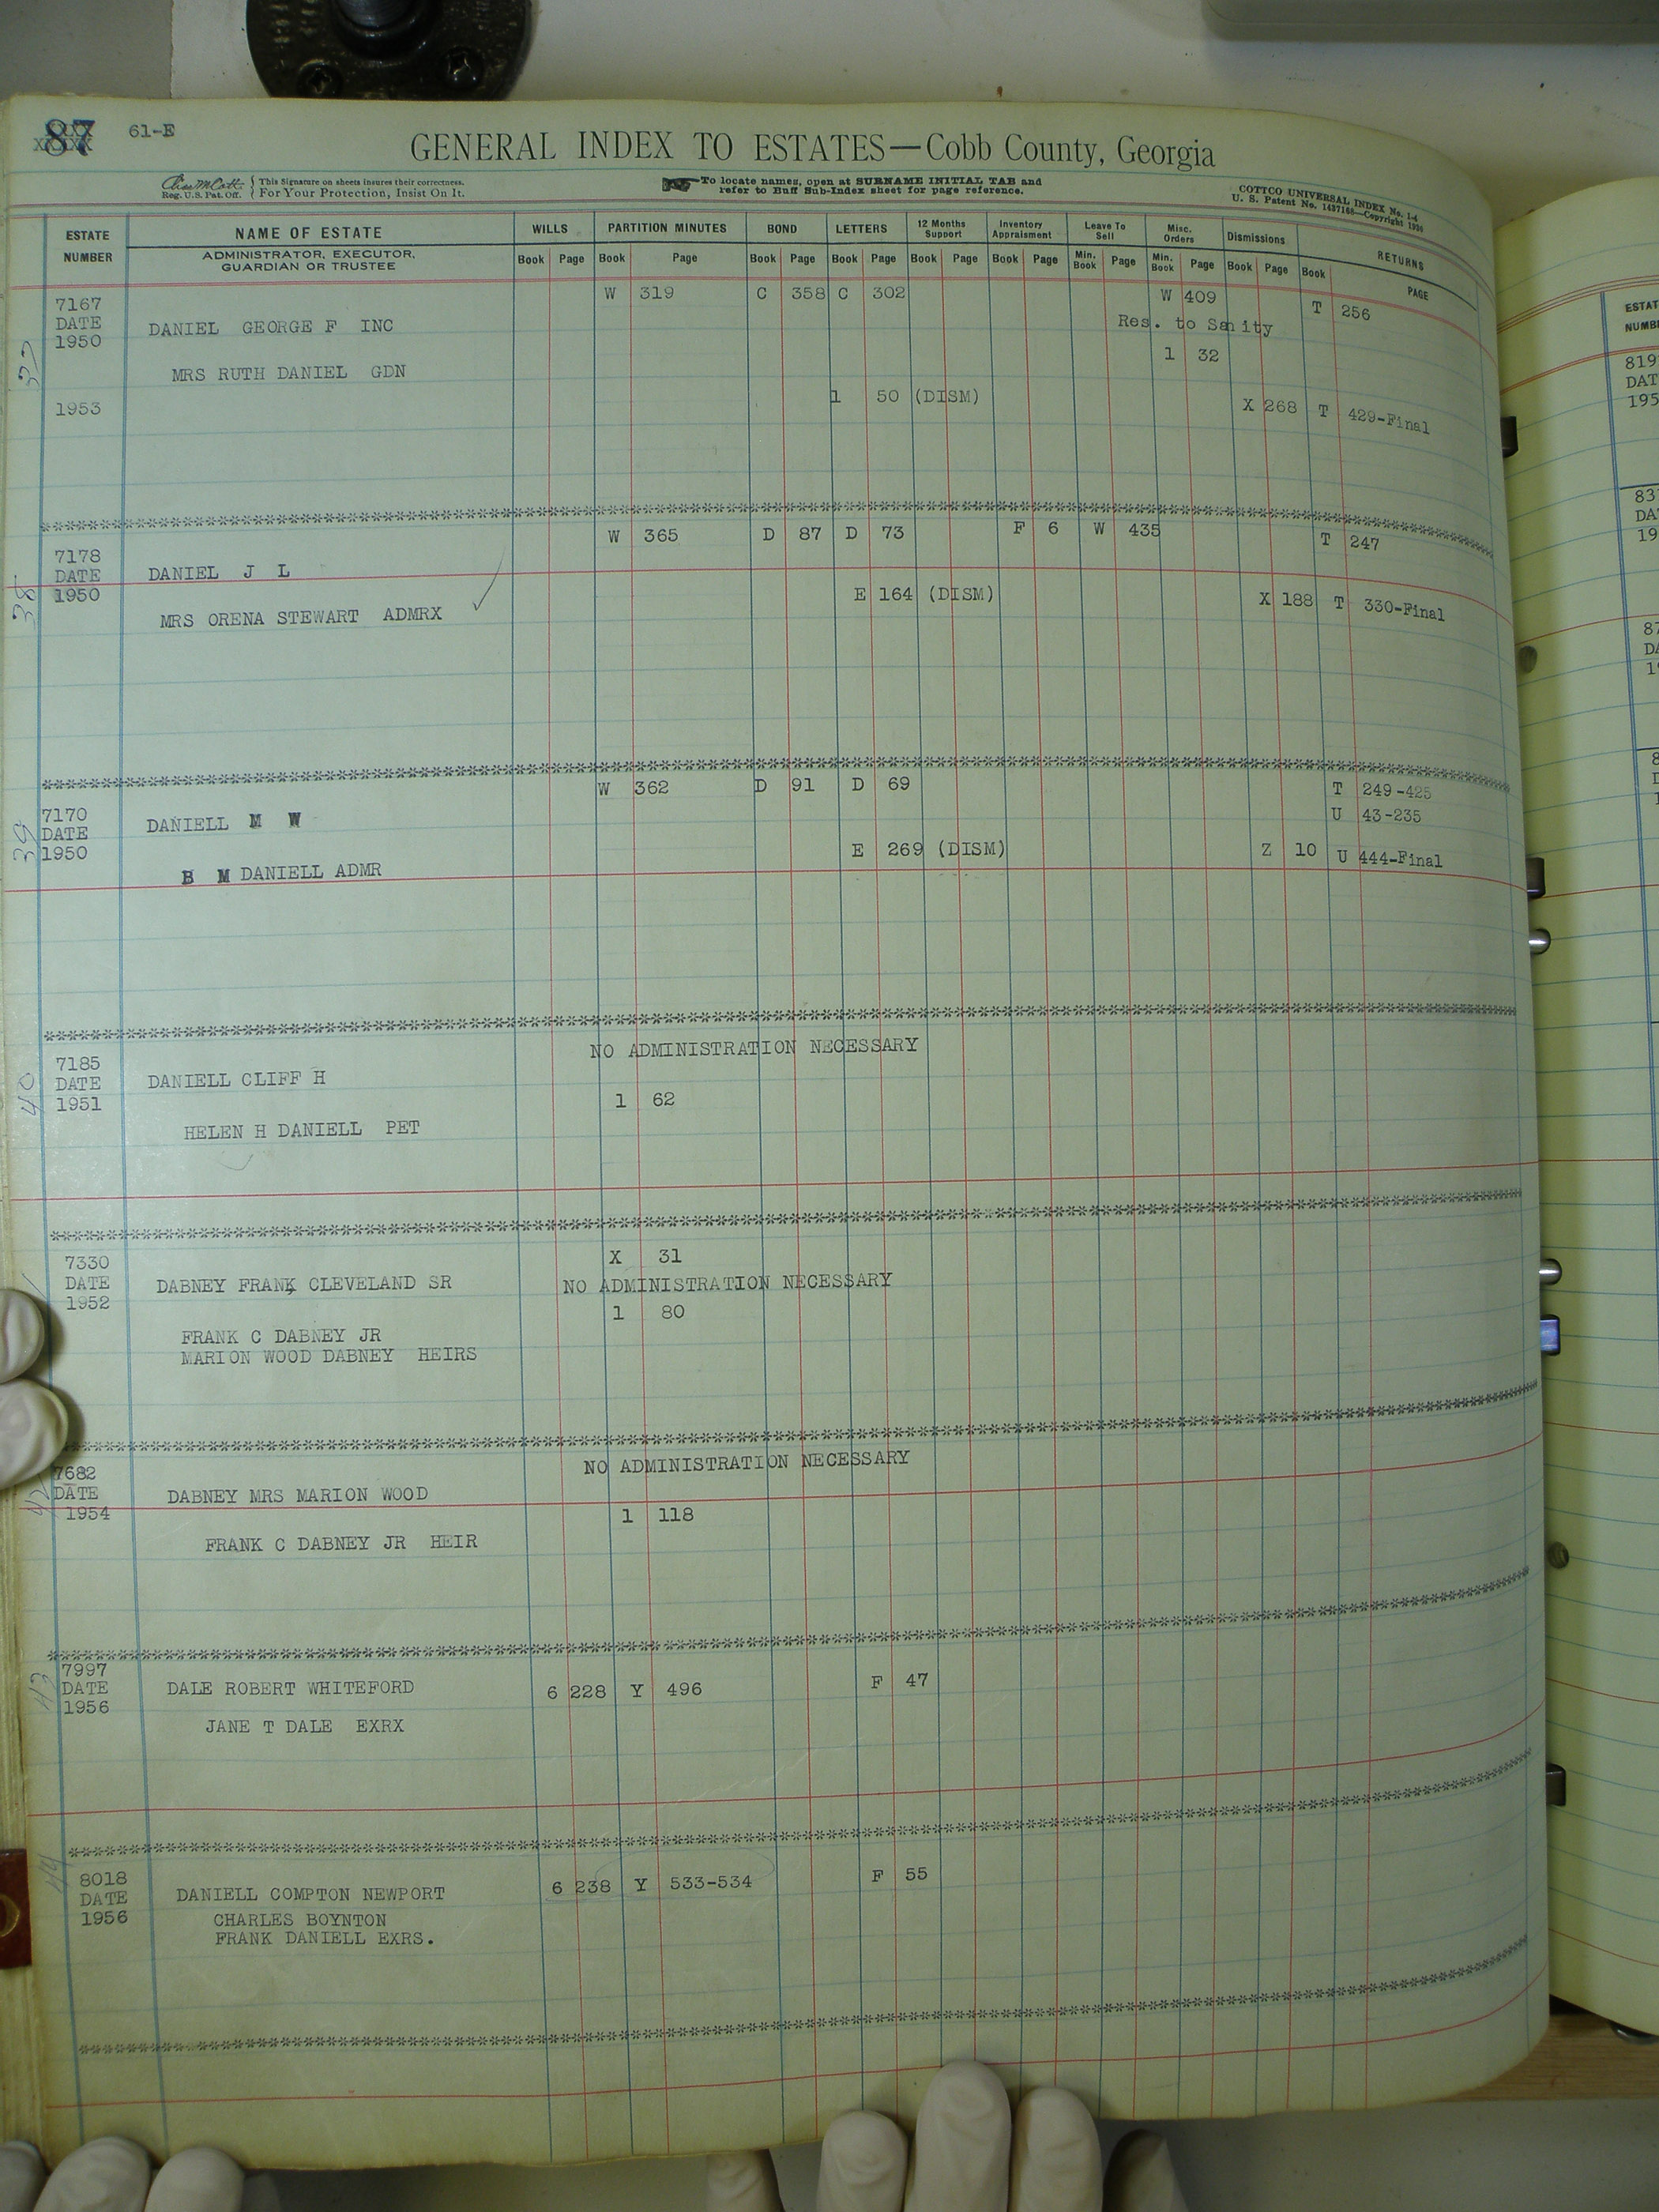 87 61-E
GENERAL INDEX TO ESTATES—Cobb County, Georgia
Reg. U.S. Pat. Off. This Signature on sheets insures their correctness. For Your Protection, Insist On It.
To locate names, open at SURNAME INITIAL TAB and
refer to Buff Sub-Index sheet for page reference.
COTTCO UNIVERSAL INDEX No. 1-4
U. S. Patent No. 1437168—Copyright 1930
ESTATE NUMBER
NAME OF ESTATE
ADMINISTRATOR, EXECUTOR,
GUARDIAN OR TRUSTEE
WILLS PARTITION MINUTES BOND LETTERS 12 Months Support Inventory Appraisment Leave To Sell Misc. Orders Dismissions RETURNS
Book Page Book Page Book Page Book Page Book Page Book Page Min. Book Page Min. Book Page Book Page Book PAGE
W 319 C 358 C 302 W 409 T 256
7167
DATE
1950
DANIEL GEORGE F INC
Res. to Sanity
1 32
MRS RUTH DANIEL GDN
1953 1 50 (DISM) X 268 T 429-Final
37
W 365 D 87 D 73 F 6 W 435 T 247
7178
DATE
1950
DANIEL J L
E 164 (DISM) X 188 T 330-Final
MRS ORENA STEWART ADMRX
38
W 362 D 91 D 69 T 249-425
U 43-235
7170
DATE
1950
DANIELL M W
E 269 (DISM) Z 10 U 444-Final
B M DANIELL ADMR
39
NO ADMINISTRATION NECESSARY
7185
DATE
1951
DANIELL CLIFF H
1 62
HELEN H DANIELL PET
40
X 31
7330
DATE
1952
DABNEY FRANK CLEVELAND SR NO ADMINISTRATION NECESSARY
1 80
FRANK C DABNEY JR
MARION WOOD DABNEY HEIRS
NO ADMINISTRATION NECESSARY
7682
DATE
1954
DABNEY MRS MARION WOOD
1 118
FRANK C DABNEY JR HEIR
42
7997
DATE
1956
DALE ROBERT WHITEFORD 6 228 Y 496 F 47
JANE T DALE EXRX
43
8018
DATE
1956
DANIELL COMPTON NEWPORT 6 238 Y 533-534 F 55
CHARLES BOYNTON
FRANK DANIELL EXRS.
44